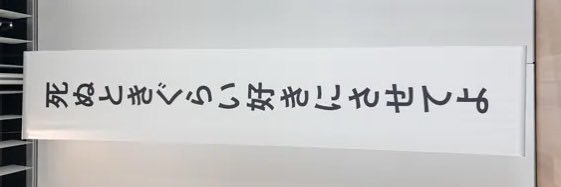 死ぬときぐらい好きにさせてよ